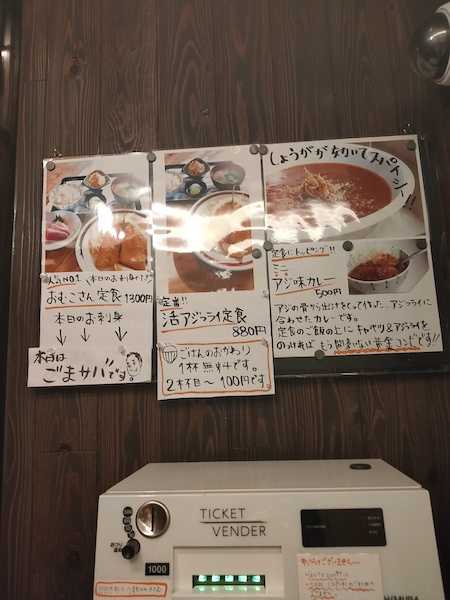 人気NO.1
おむこさん定食 1300円
本日のお刺身
↓ ↓ ↓
本日は
ごまサバです。
定番!!
活アジフライ定食
880円
ごはんのおかわり
1杯無料です。
2杯目〜100円です。
しょうがが効いてスパイシー
定食にトッピング!!
ミニ
アジ味カレー
500円
アジの骨から出汁をとって作った、アジフライに
合わせたカレーです。
定食のご飯の上にキャベツ&アジフライを
のっければもう間違いない黄金コンビです!!
TICKET
VENDER
1000